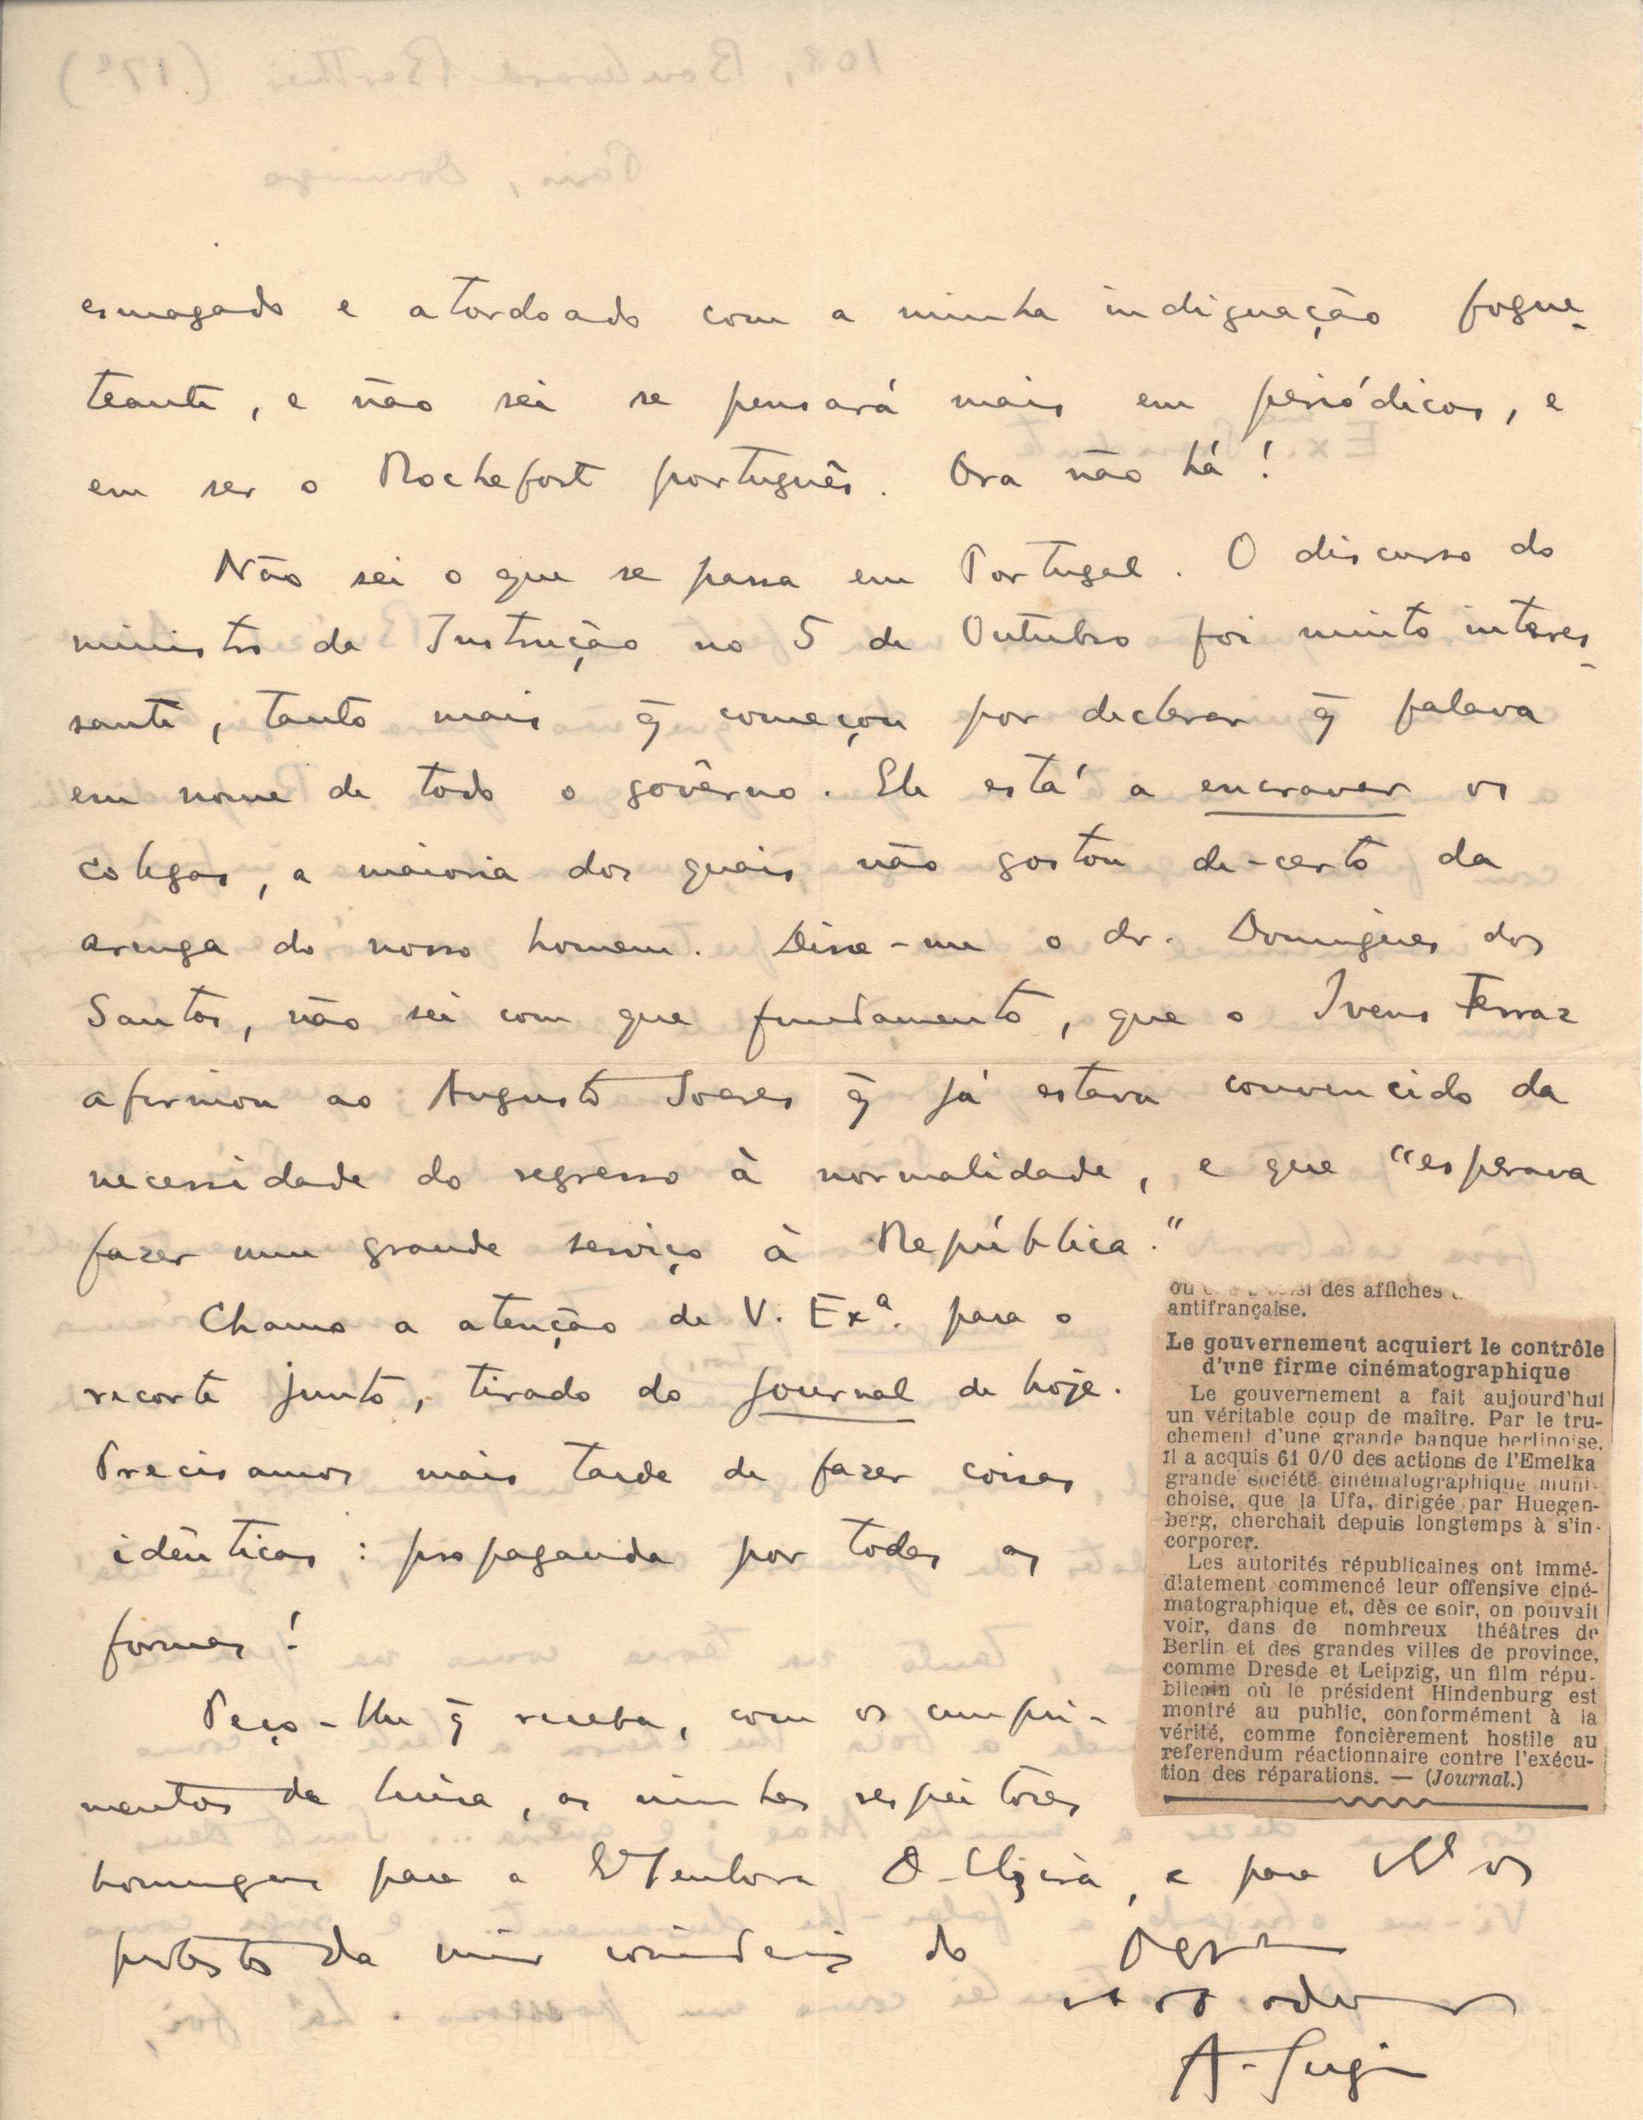 esmagado e atordoado com a minha indignação fogue-
teante, e não sei se pensará mais em periódicos, e
em ser o Rochefort português. Ora não há!
Não sei o que se passa em Portugal. O discurso do
ministro da Instrução no 5 de Outubro foi muito interes-
sante, tanto mais q̃ começou por declarar q̃ falava
em nome de todo o govêrno. Ele está a encravar os
colegas, a maioria dos quais não gostou de-certo da
arenga do nosso homem. Disse-me o dr. Domingues dos
Santos, não sei com que fundamento, que o Ivens Ferraz
afirmou ao Augusto Soares q̃ já estava convencido da
necessidade do regresso à normalidade, e que "esperava
fazer um grande serviço à República."
Chamo a atenção de V. Exª. para o
recorte junto, tirado do Journal de hoje.
Precisamos mais tarde de fazer coisas
idênticas: propaganda por todas as
formas!
Peço-lhe q̃ receba, com os cumpri-
mentos da Luisa, as minhas respeitosas
homenagens para a Senhora D. Elzira, e para V. os
protestos da consideração do
A. Sergio
108, Boulevard Berthier (17e)
Paris, Domingo
des affiches
antifrançaise.
Le gouvernement acquiert le contrôle
d'une firme cinématographique
Le gouvernement a fait aujourd'hui
un véritable coup de maître. Par le tru-
chement d'une grande banque berlinoise,
il a acquis 61 0/0 des actions de l'Emelka
grande société cinématographique muni-
choise, que la Ufa, dirigée par Huegen-
berg, cherchait depuis longtemps à s'in-
corporer.
Les autorités républicaines ont immé-
diatement commencé leur offensive ciné-
matographique et, dès ce soir, on pouvait
voir, dans de nombreux théâtres de
Berlin et des grandes villes de province,
comme Dresde et Leipzig, un film répu-
blicain où le président Hindenburg est
montré au public, conformément à la
vérité, comme foncièrement hostile au
referendum réactionnaire contre l'exécu-
tion des réparations. — (Journal.)